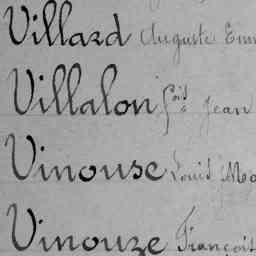 Villard Auguste
Villalon fçois Jean
Vinouse Louis
Vinouze François